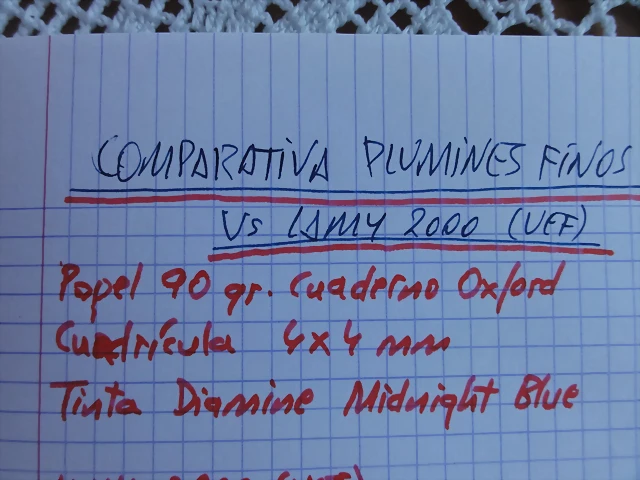 COMPARATIVA PLUMINES FINOS
Vs LAMY 2000 (UEF)
Papel 90 gr. Cuaderno Oxford
Cuadrícula 4x4 mm
Tinta Diamine Midnight Blue